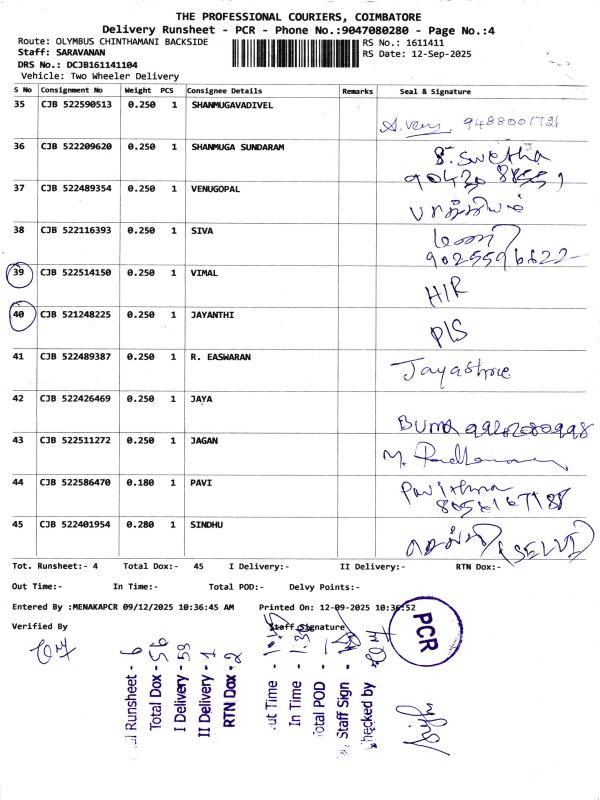 THE PROFESSIONAL COURIERS, COIMBATORE
Delivery Runsheet - PCR - Phone No.:9047080280 - Page No.:4
Route: OLYMBUS CHINTHAMANI BACKSIDE
RS No.: 1611411
Staff: SARAVANAN
RS Date: 12-Sep-2025
DRS No.: DCJB161141104
Vehicle: Two Wheeler Delivery
S No Consignment No Weight PCS Consignee Details Remarks Seal & Signature
35 CJB 522590513 0.250 1 SHANMUGAVADIVEL
36 CJB 522209620 0.250 1 SHANMUGA SUNDARAM
S. Swetha
37 CJB 522489354 0.250 1 VENUGOPAL
38 CJB 522116393 0.250 1 SIVA
39 CJB 522514150 0.250 1 VIMAL
H/R
40 CJB 521248225 0.250 1 JAYANTHI
P/S
41 CJB 522489387 0.250 1 R. EASWARAN
Jayashree
42 CJB 522426469 0.250 1 JAYA
BUMA
43 CJB 522511272 0.250 1 JAGAN
44 CJB 522586470 0.180 1 PAVI
Pavithra
45 CJB 522401954 0.280 1 SINDHU
(SELVI)
Tot. Runsheet:- 4 Total Dox:- 45 I Delivery:- II Delivery:- RTN Dox:-
Out Time:- In Time:- Total POD:- Delvy Points:-
Entered By :MENAKAPCR 09/12/2025 10:36:45 AM Printed On: 12-09-2025 10:36:52
Verified By Staff Signature
PCR
Runsheet - 6
Total Dox - 56
I Delivery - 53
II Delivery - 1
RTN Dox - 2
ut Time -
In Time - 1.3
otal POD -
Staff Sign -
hecked by